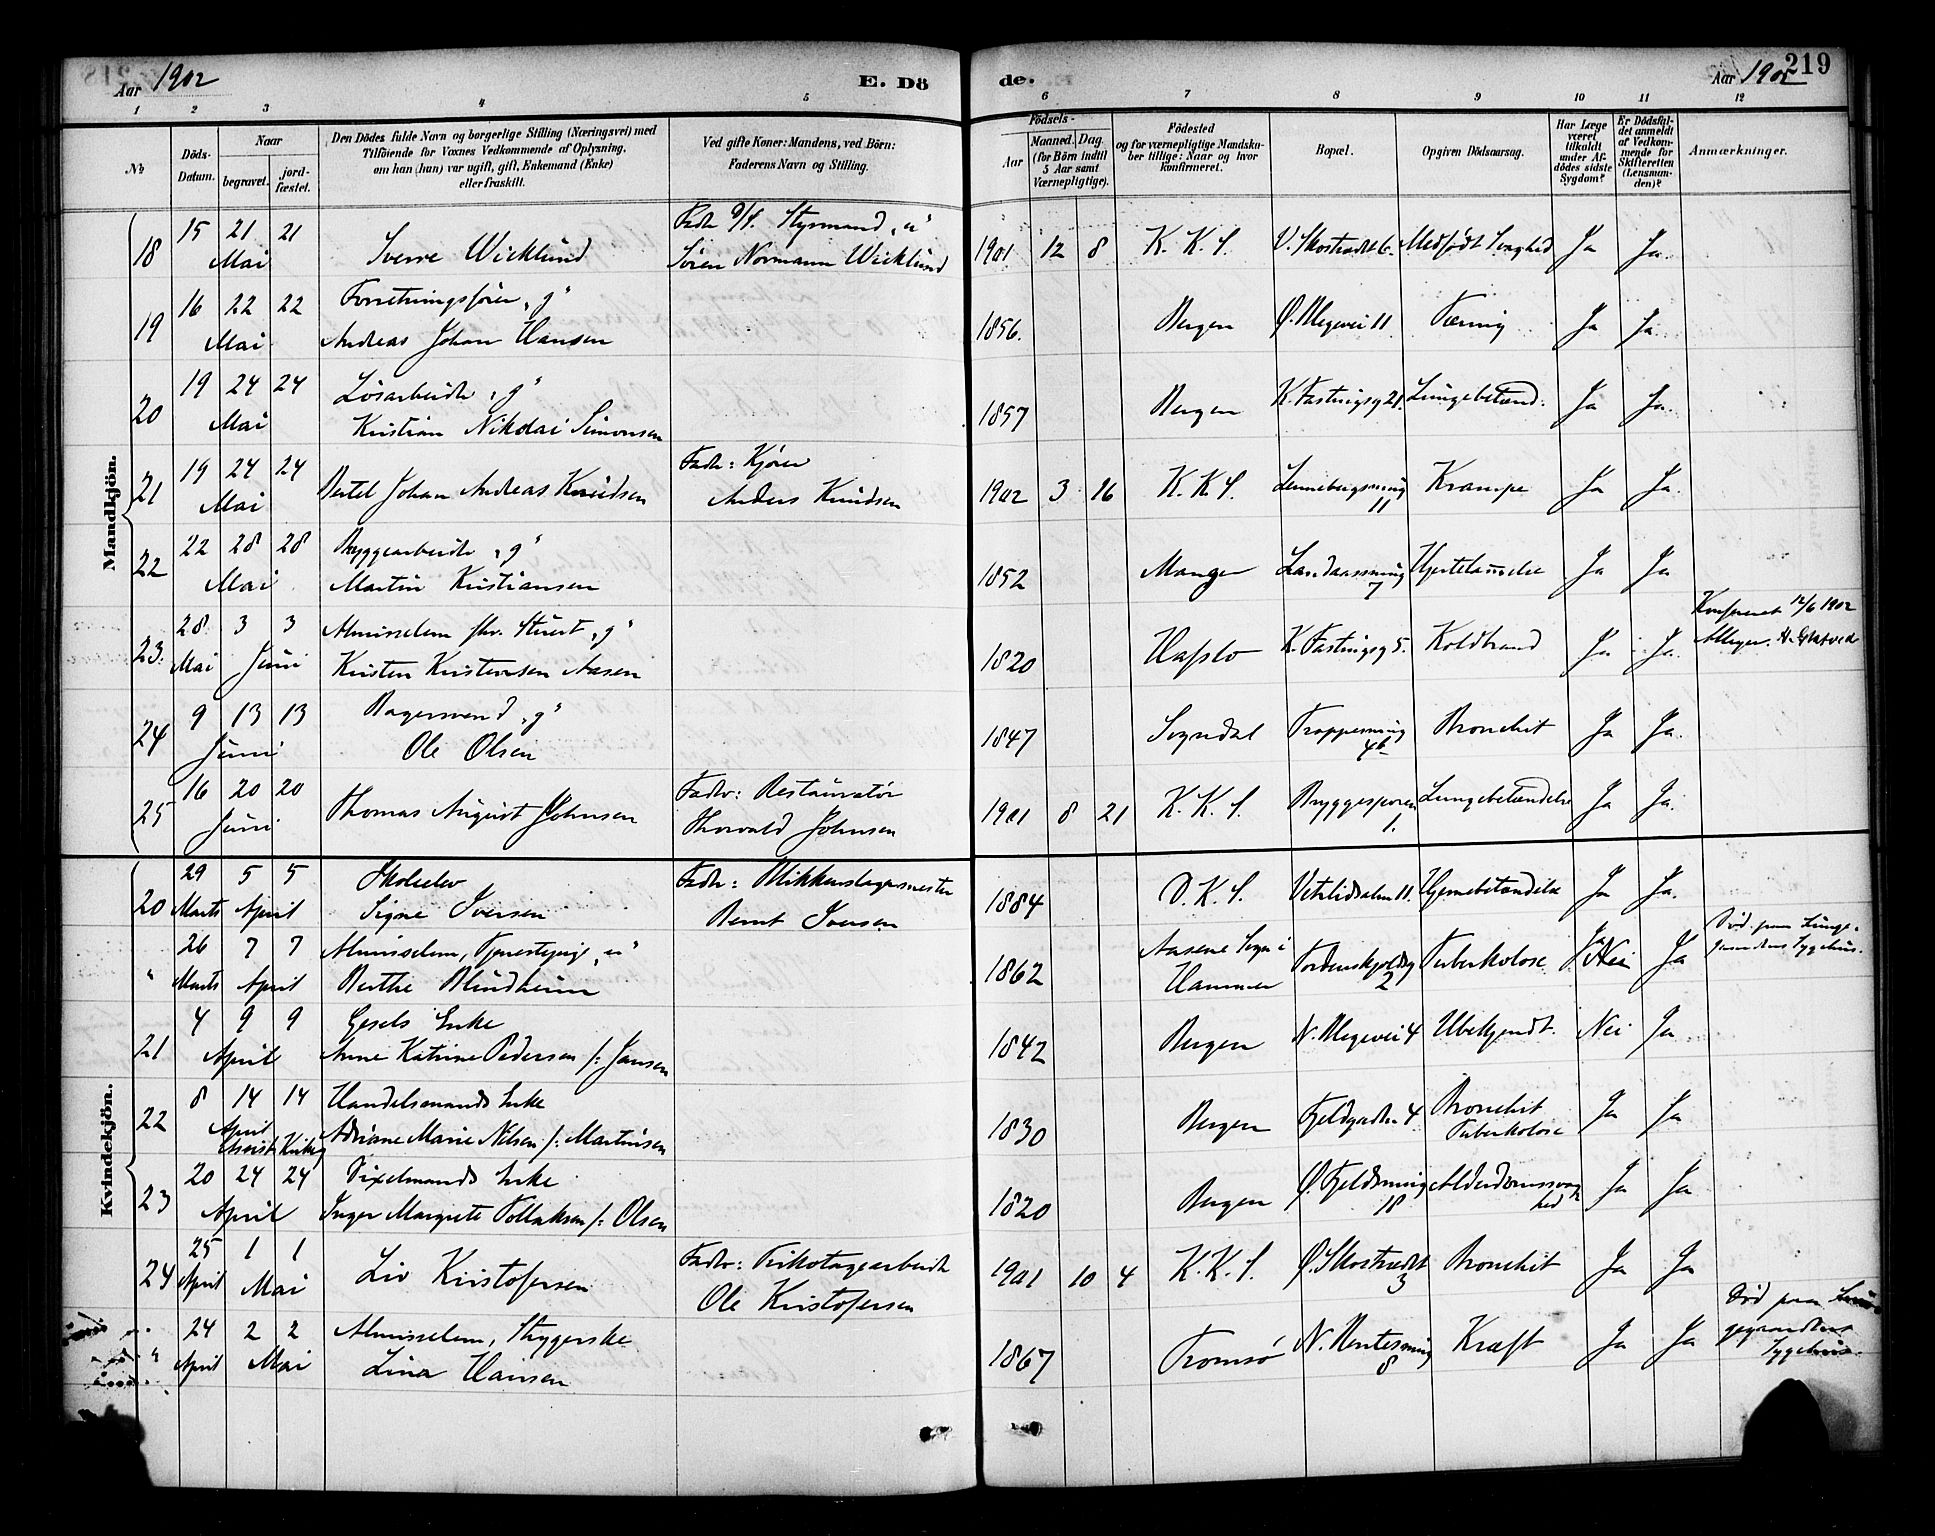 Aar 1902
E. Dö
de.
Aar 1902
219
1 2 3 4 5 6 7 8 9 10 11 12
No
Döds-Datum.
Naar
begravet.
jordfæstet.
Den Dödes fulde Navn og borgerlige Stilling (Næringsvei) med
Tilföiende for Voxnes Vedkommende af Oplysning,
om han (hun) var ugift, gift, Enkemand (Enke)
eller fraskilt.
Ved gifte Koner: Mandens, ved Börn:
Faderens Navn og Stilling.
Födsels-
Aar
Maaned. Dag.
(for Börn indtil
5 Aar samt
Værnepligtige).
Födested
og for værnepligtige Mandskaber
tillige: Naar og hvor
konfirmeret.
Bopæl.
Opgiven Dödsaarsag.
Har Læge
været
tilkaldt
under Afdödes
sidste
Sygdom?
Er Dödsfaldet
anmeldt
af Vedkommende
for
Skifteretten
(Lensmanden)?
Anmærkninger.
Mandkjön.
18 15 21 21 Mai Sverre Wicklund Fader Styrmand "u" Sören Normann Wicklund 1901 12 8 K. K. S. V. Skostrædet 6. Medfödt Svaghed Ja Ja.
19 16 22 22 Mai Forretningsförer "g" Andreas Johan Hansen 1856. Bergen Ø. Blegevei 11 Tæring Ja Ja.
20 19 24 24 Mai Lösarbeider "g" Kristian Nikolai Simonsen 1857 Bergen K. Fastingsg 21. Lungebetænd. Ja Ja.
21 19 24 24 Mai Bertel Johan Andreas Knudsen Fader: Kjörer Anders Knudsen 1902 3 16 K. K. S. Lennebergsmug 11 Krampe Ja Ja.
22 22 28 28 Mai Bryggearbeider "g" Martin Kristiansen 1852 Manger Landaassmug 7 Hjertelammelse Ja Ja
23. 28 Mai 3 3 Juni Almisselem fhv. Stuert "g" Kristen Kristensen Aasen 1820 Hafslo K. Fastingsg 5. Koldbrand Ja Ja. Konfereret 12/6 1902
24 9 13 13 Juni Bagersvend "g" Ole Olsen 1847 Sogndal Trappesmug 4b Bronchit Ja Ja.
25 16 20 20 Juni Thomas August Johnsen Fader: Restauratör Thorvald Johnsen 1901 8 21 K. K. S. Bryggesporen 1. Lungebetændelse Ja Ja.
Kvindekjön.
20 29 Marts 5 5 April Skoleelev Signe Iversen Fader: Blikkenslagermester Bernt Iversen 1884 D. K. S. Vetrlidsalm 11. Hjernebetændelse Ja Ja.
" 26 Marts 7 7 April Almisselem, Tjenestepige "u" Berthe Blindheim 1862 Aasene Sogn i Hammer Tordenskjoldsg 2 Tuberkolose Ja Nei Ja Död paa Lungegaardens Sygehus.
21 4 9 9 April Gesels Enke Anne Katrine Pedersen f: Jansen 1842 Bergen N. Blegevei 4 Ubekjendt. Nei Ja
22 8 14 14 April Handelsmands Enke Adriane Marie Nilsen f: Martinsen 1830 Bergen Fjeldgaden 4 Bronchit Tuberkolose Ja Ja
23 20 24 24 April Vixelmands Enke Inger Margrete Tollaksen f: Olsen 1820 Bergen Ø. Fjeldsmug 18 Alderdomssvaghed Ja Ja
24 25 April 1 1 Mai Liv Kristofersen Fader: Trikotagearbeider Ole Kristofersen 1901 10 4 K. K. S. Ø. Skostrædet 3 Bronchit Ja Ja
" 24 April 2 2 Mai Almisselem, Strygerske Lina Hansen 1867 Tromsö N. Hentesmug 8 Kræft Ja Ja Död paa Sygehus.